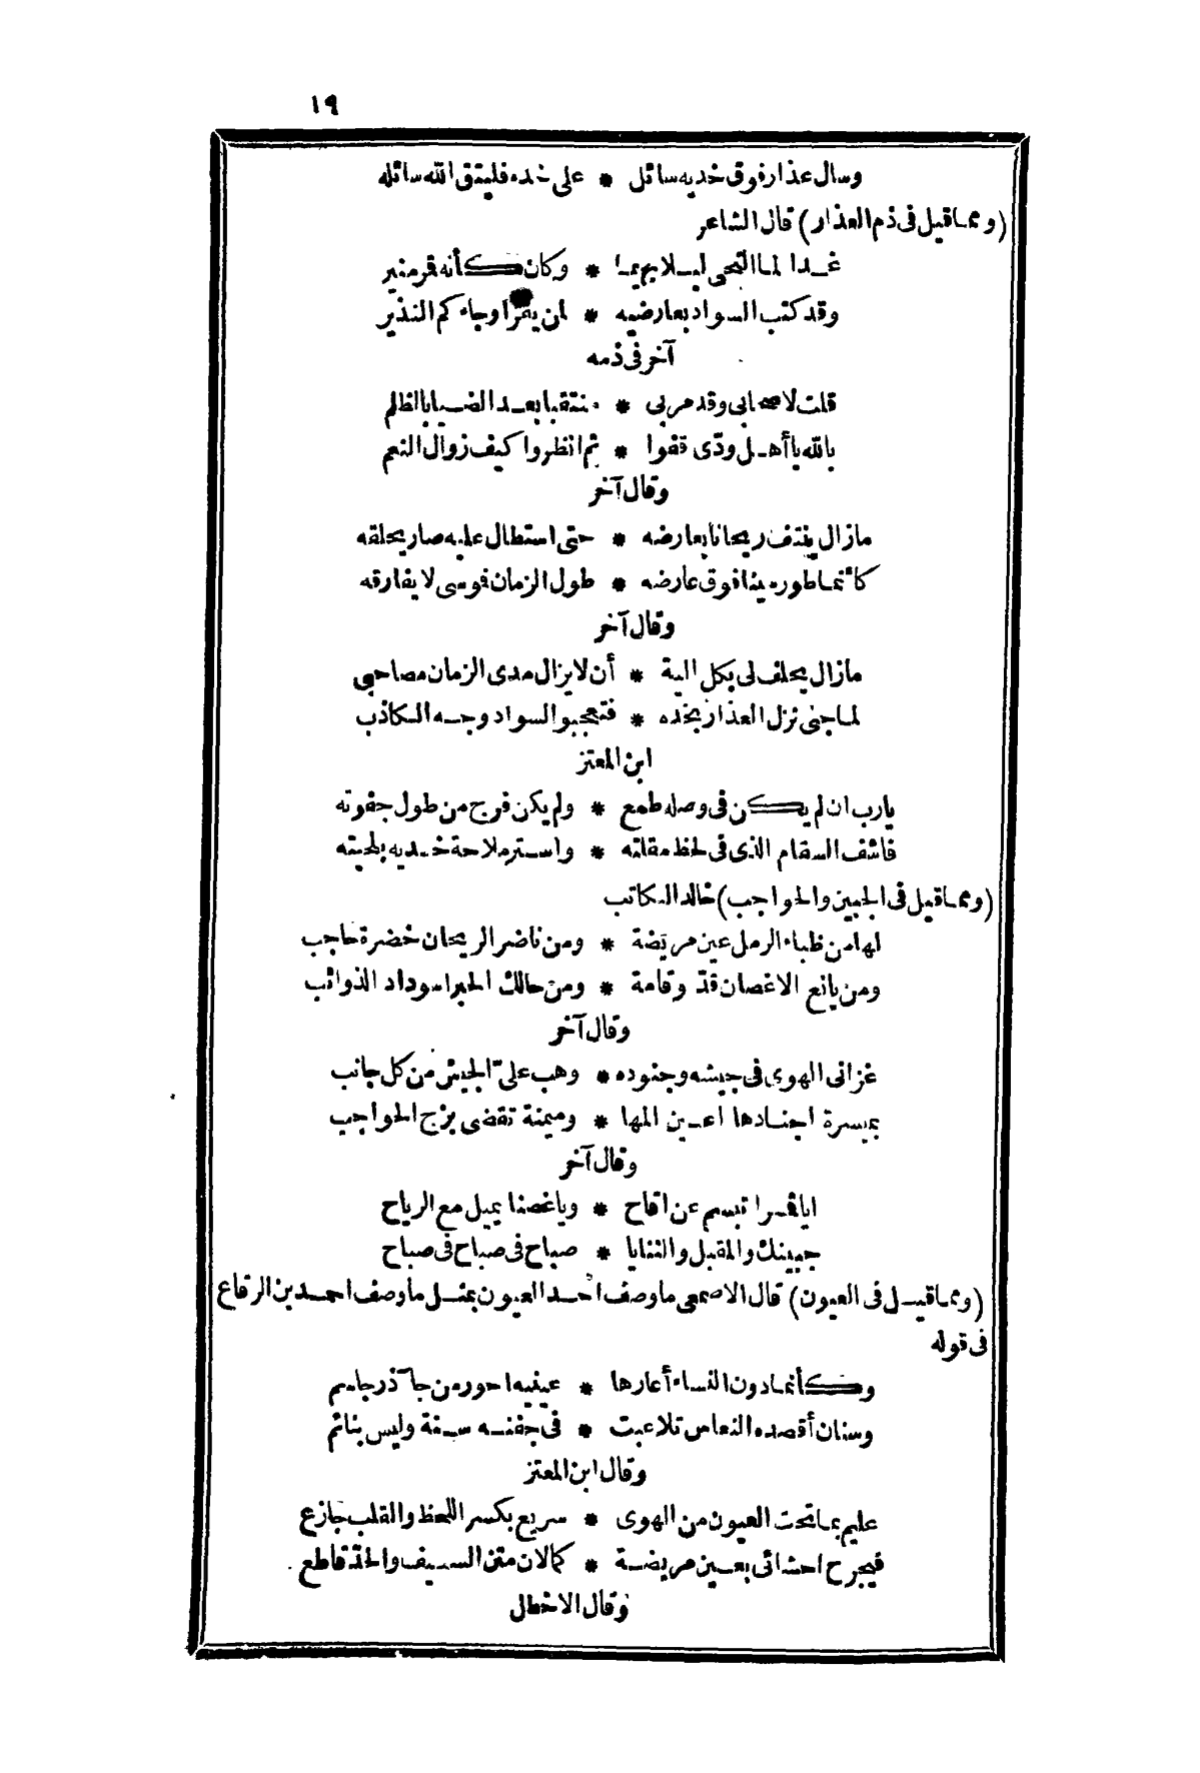 ١٩
وسال عذار فوق خديه سائل * على خده فليتق الله سائله
(ومما قيل فى ذم العذار) قال الشاعر
غدا لما التحى ليلا بهيما * وكان كأنه قمر منير
وقد كتب السواد بعارضيه * لمن يقرا وجاءكم النذير
آخر فى ذمه
قلت لاصحابى وقد مر بى * منتقبا بعد الضيا بالظلم
بالله يا أهل ودّى قفوا * ثم انظروا كيف زوال النعم
وقال آخر
مازال ينتف ريحانا بعارضه * حتى استطال عليه صار يحلقه
كأنما طور سينا فوق عارضه * طول الزمان فموسى لا يفارقه
وقال آخر
مازال يحلف لى بكل الية * أن لا يزال مدى الزمان مصاحبى
لما جنى نزل العذار بخده * فتعجبوا لسواد وجه الكاذب
ابن المعتز
يارب ان لم يكن فى وصله طمع * ولم يكن فرج من طول جفوته
فاشف السقام الذى فى لحظ مقلته * واستر ملاحة خديه بلحيته
(ومما قيل فى الجبين والحواجب) خالد الكاتب
لها من ظباء الرمل عين مريضة * ومن ناضر الريحان خضرة حاجب
ومن يانع الاغصان قدّ وقامة * ومن حالك الحبر اسوداد الذوائب
وقال آخر
غزانى الهوى فى جيشه وجنوده * وهب علىّ الجيش من كل جانب
بميسرة اجنادها اعين المها * وميمنة تقضى بزج الحواجب
وقال آخر
ايا قمرا تبسم عن اقاح * وياغصنا يميل مع الرياح
جبينك والمقبل والثنايا * صباح فى صباح فى صباح
(ومما قيل فى العيون) قال الاصمعى ما وصف أحد العيون بمثل ما وصف احمد بن الرقاع
فى قوله
وكأنما دون النساء أعارها * عينيه احور من جآذر جاسم
وسنان أقصده النعاس تلاعبت * فى جفنه سنة وليس بنائم
وقال ابن المعتز
عليم بما تحت العيون من الهوى * سريع بكسر اللحظ والقلب جازع
فيجرح احشائى بعين مريضة * كما لان متن السيف والحدّ قاطع
وقال الاخطل